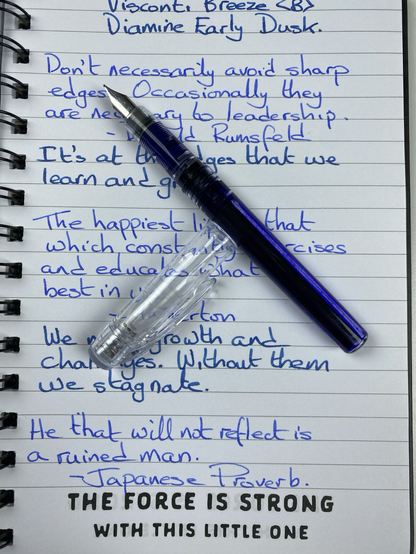 Visconti Breeze <B>
Diamine Early Dusk.
Don't necessarily avoid sharp
edges. Occasionally they
are to leadership.
- Rumsfeld
It's at that we
learn and
The happiest that
which
and what
best in
We growth and
Without them
we stagnate.
He that will not reflect is
a ruined man.
-Japanese Proverb.
THE FORCE IS STRONG
WITH THIS LITTLE ONE